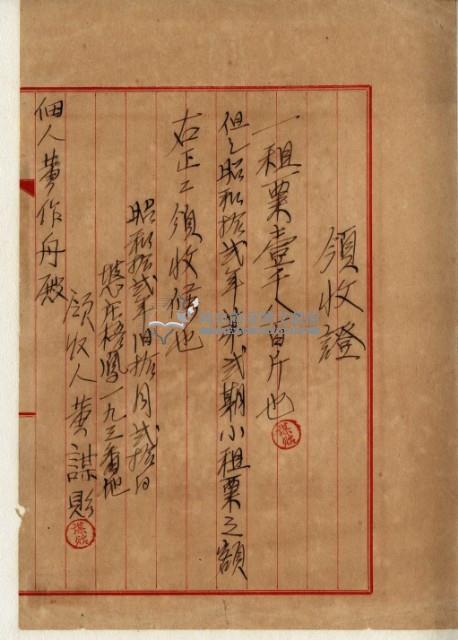 領收證
一租粟壹千八百斤也
但シ昭和拾貳年第貳期小租粟之額
右正ニ領收候也
昭和拾貳年旧拾月貳拾日
梧鳳一九三番地
領收人黄謀賜
個人黄作舟殿